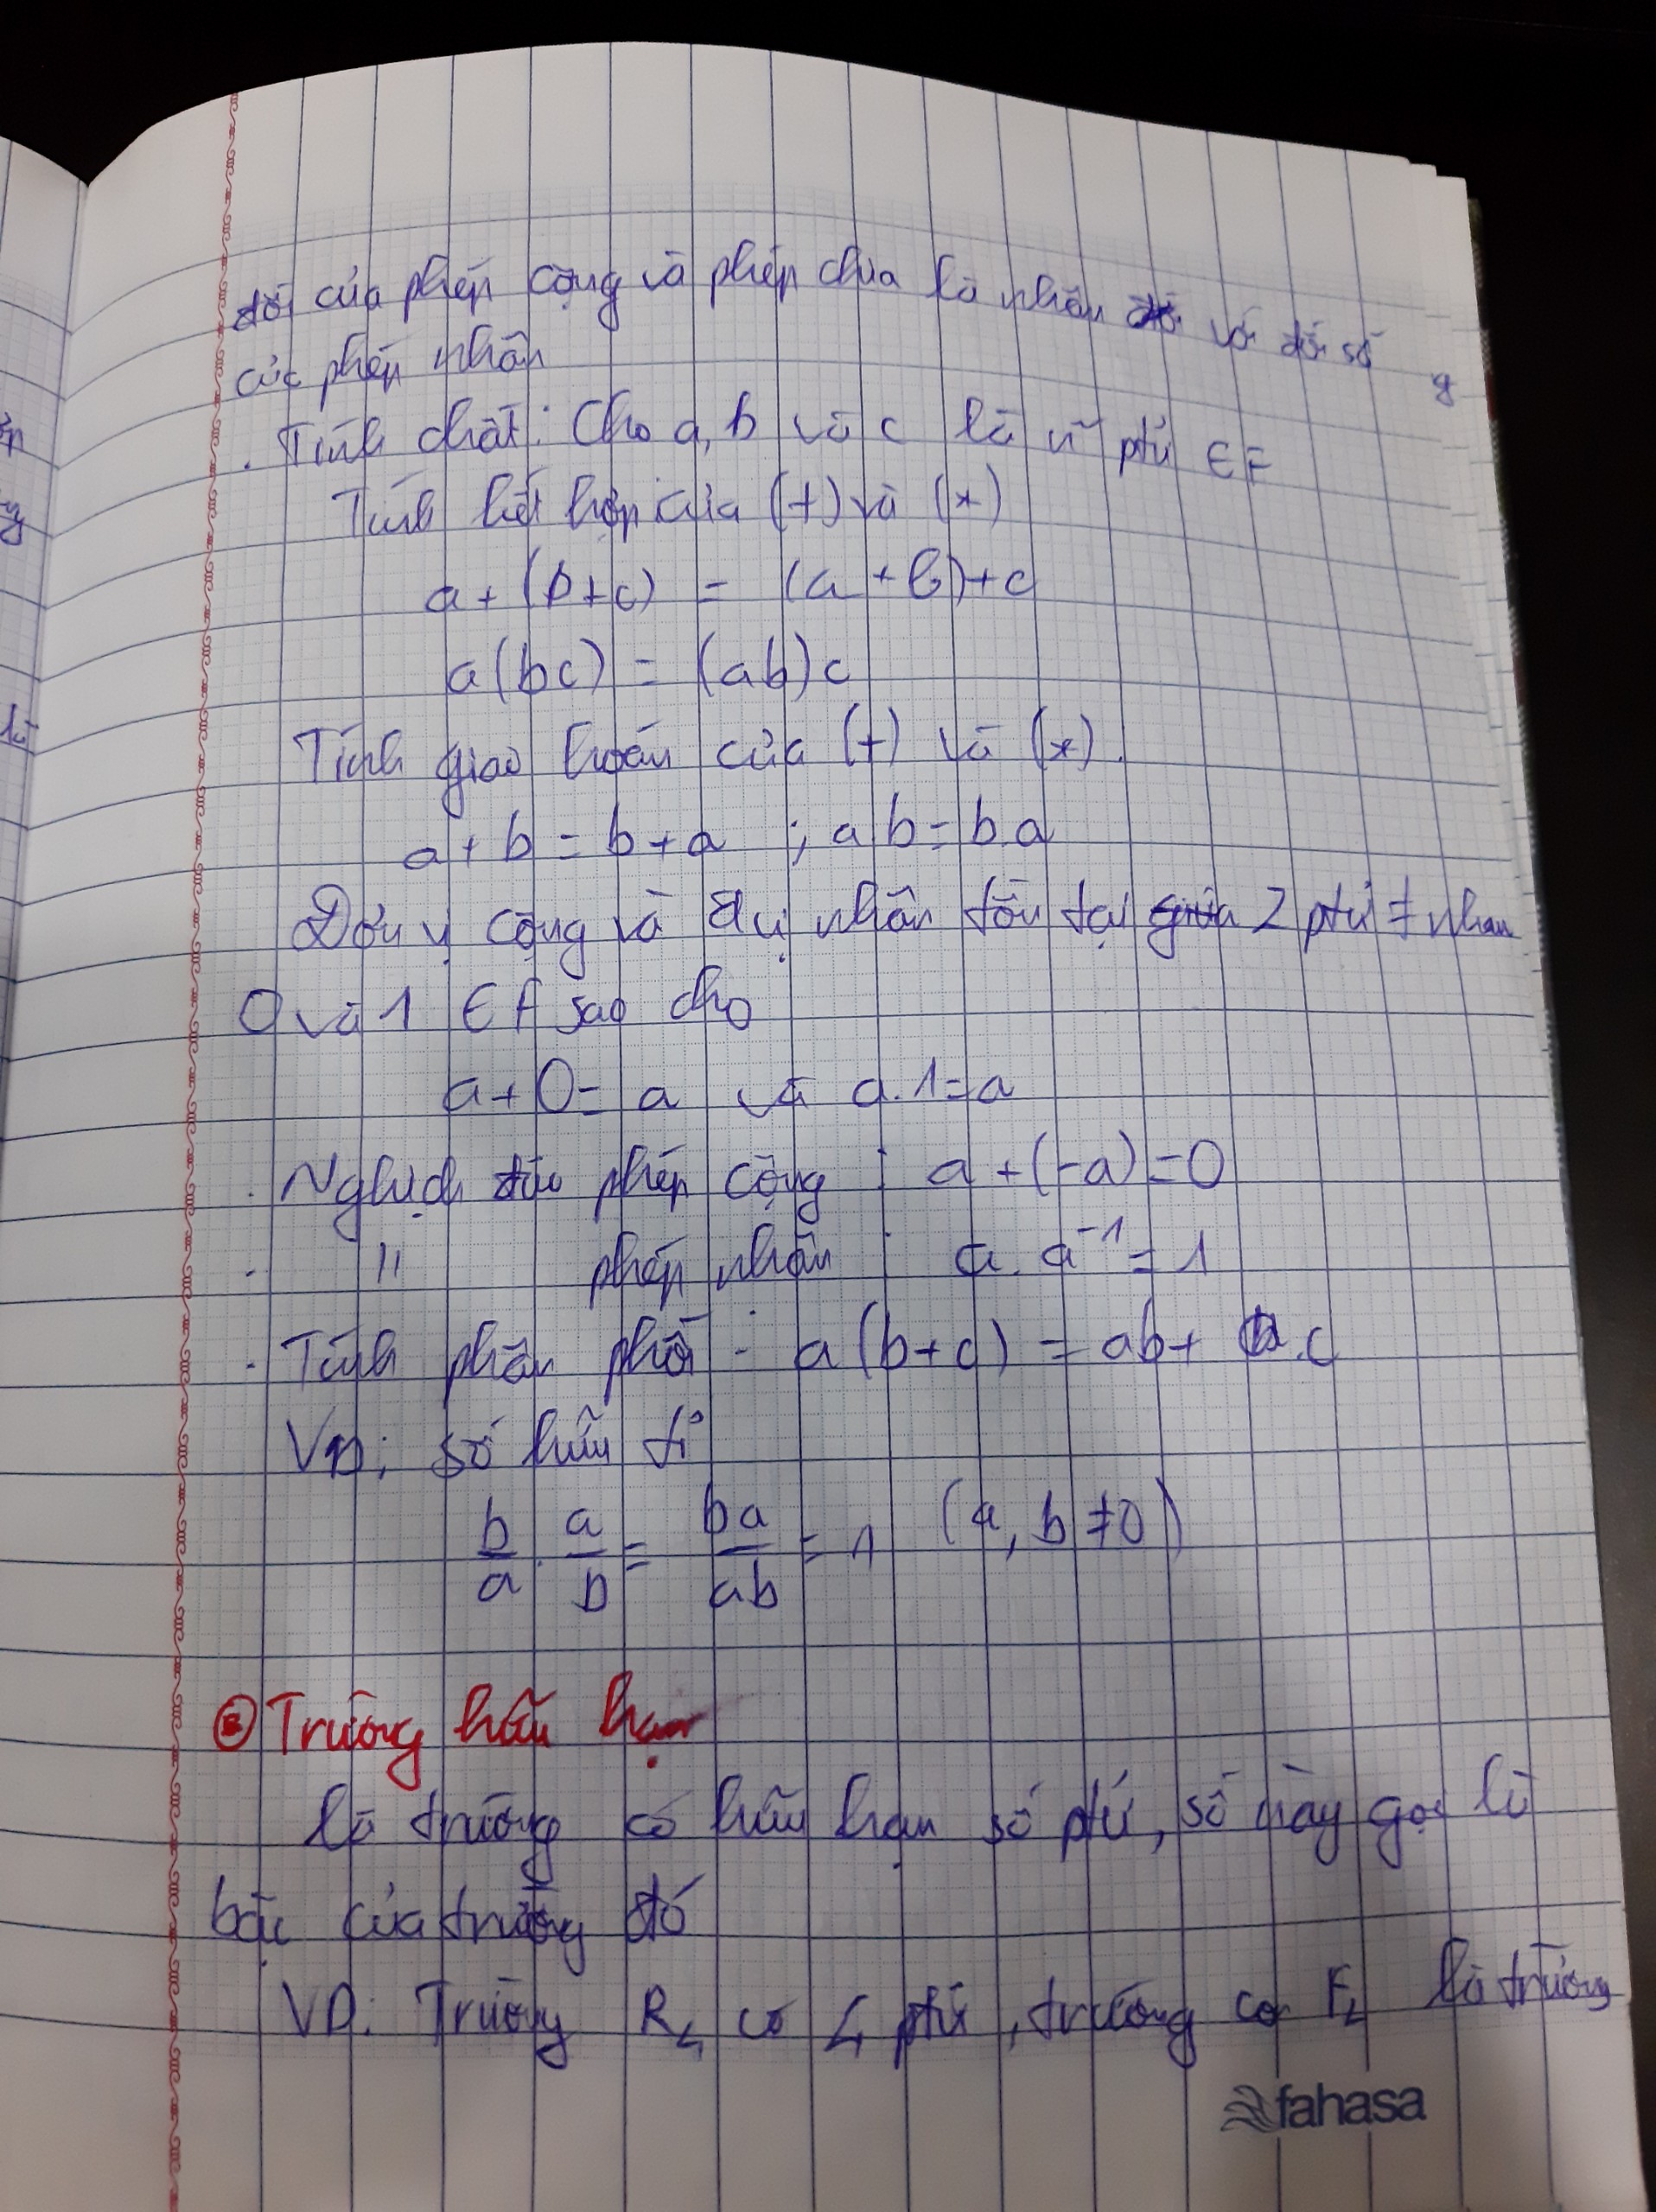 đối của phép cộng và phép chia là nhân với đối số
của phép nhân
. Tính chất: Cho a, b và c là ptử ∈ F
Tính kết hợp của (+) và (*)
a + (b+c) = (a + b)+c
a(bc) = (ab)c
Tính giao hoán của (+) và (*).
a + b = b + a ; ab = b.a
Đơn vị cộng và đvị nhân tồn tại 2 ptử ≠ nhau
0 và 1 ∈ F sao cho
a + 0 = a và a.1 = a
. Nghịch đảo phép cộng : a + (-a) = 0
. " phép nhân : a. a⁻¹ = 1
. Tính phân phối : a(b+c) = ab + a.c
VD: số hữu tỉ
b/a . a/b = ba/ab = 1 (a, b ≠ 0)
Trường hữu hạn
là trường có hữu hạn số ptử, số này gọi là
bậc của trường đó
VD: Trường R₄ có 4 ptử, trường F₂ là trường
fahasa